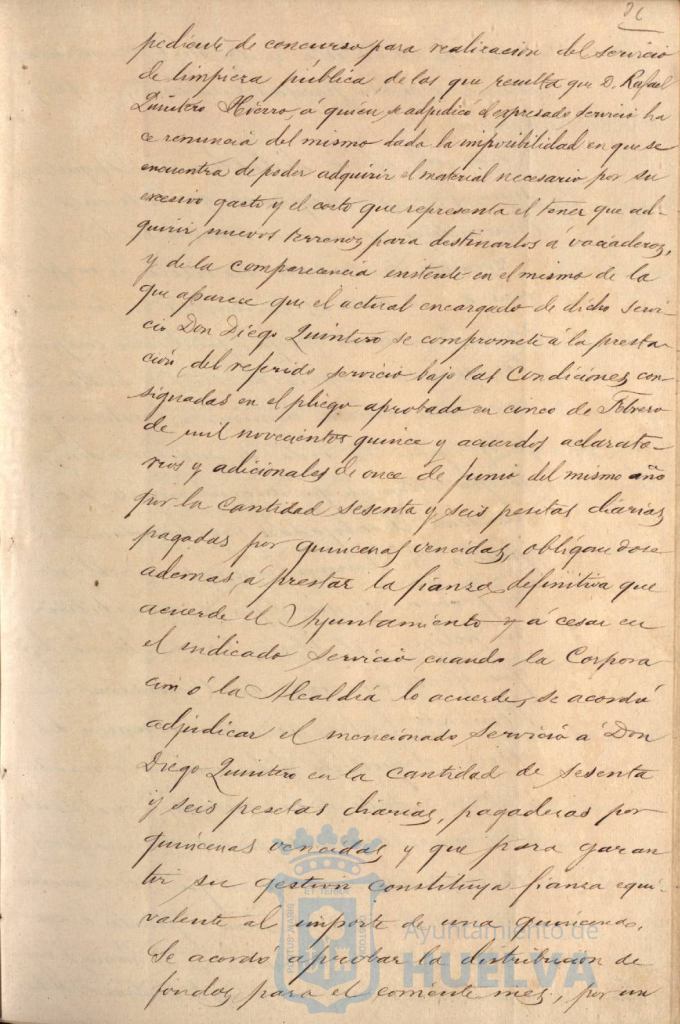 pediente de concurso para realizacion del servicio
de limpieza pública de los que resulta que D. Rafael
Quintero Hierro, á quien se adjudicó el expresado servicio ha
ce renuncia del mismo dada la imposibilidad en que se
encuentra de poder adquirir el material necesario por su
excesivo gasto y el costo que representa el tener que ad-
quirir nuevos terrenos para destinarlos á vaciaderos,
y de la comparecencia existente en el mismo de la
que aparece que el actual encargado de dicho servi-
cio Don Diego Quintero se compromete á la presta
ción del referido servicio bajo las condiciones con-
signadas en el pliego aprobado en cinco de Febrero
de mil novecientos quince y acuerdos aclarato-
rios y adicionales de once de Junio del mismo año
por la cantidad sesenta y seis pesetas diarias
pagadas por quincenas vencidas, obligandose
ademas á prestar la fianza definitiva que
acuerde el Ayuntamiento y á cesar en
el indicado servicio cuando la Corpora
cion ó la Alcaldía lo acuerde, se acordó
adjudicar el mencionado servicio á Don
Diego Quintero en la cantidad de sesenta
y seis pesetas diarias, pagaderas por
quincenas vencidas y que para garan
tir su gestion constituya fianza equi-
valente al importe de una quincena.
Se acordó aprobar la distribucion de
fondos para el corriente mes, por un
Ayuntamiento de
HUELVA